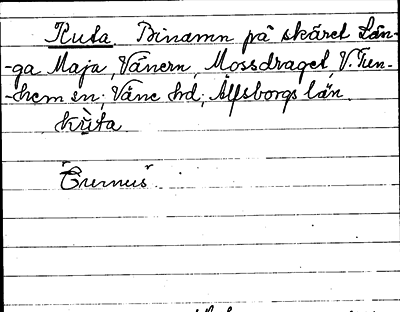 Kuta. Binamn på skäret Lån-
-ga Maja, Vänern, Mossdraget, V. Tun-
-hem sn; Väne hd; Älfsborgs län.
kùta
"Eremus"